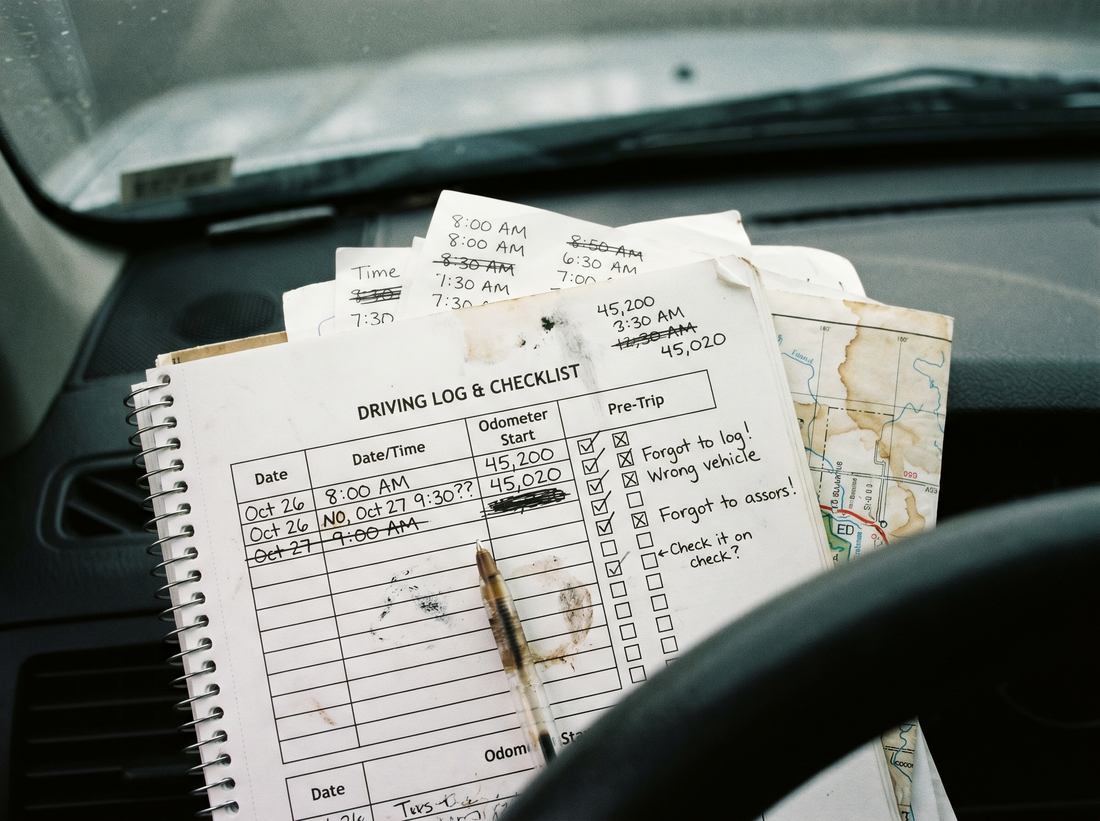 8:00 AM
8:00 AM
8:30 AM
7:30 AM
7:30
8:50 AM
6:30 AM
7:00
Time
8:30
7:30
45,200
3:30 AM
12:30 AM
45,020
DRIVING LOG & CHECKLIST
Date Date/Time Odometer Start Pre-Trip
Oct 26 8:00 AM 45,200
Oct 26 NO, Oct 27 9:30?? 45,020
Oct 27 9:00 AM
Forgot to log!
Wrong vehicle
Forgot to assors!
←Check it on
check?
Date Odom
ED